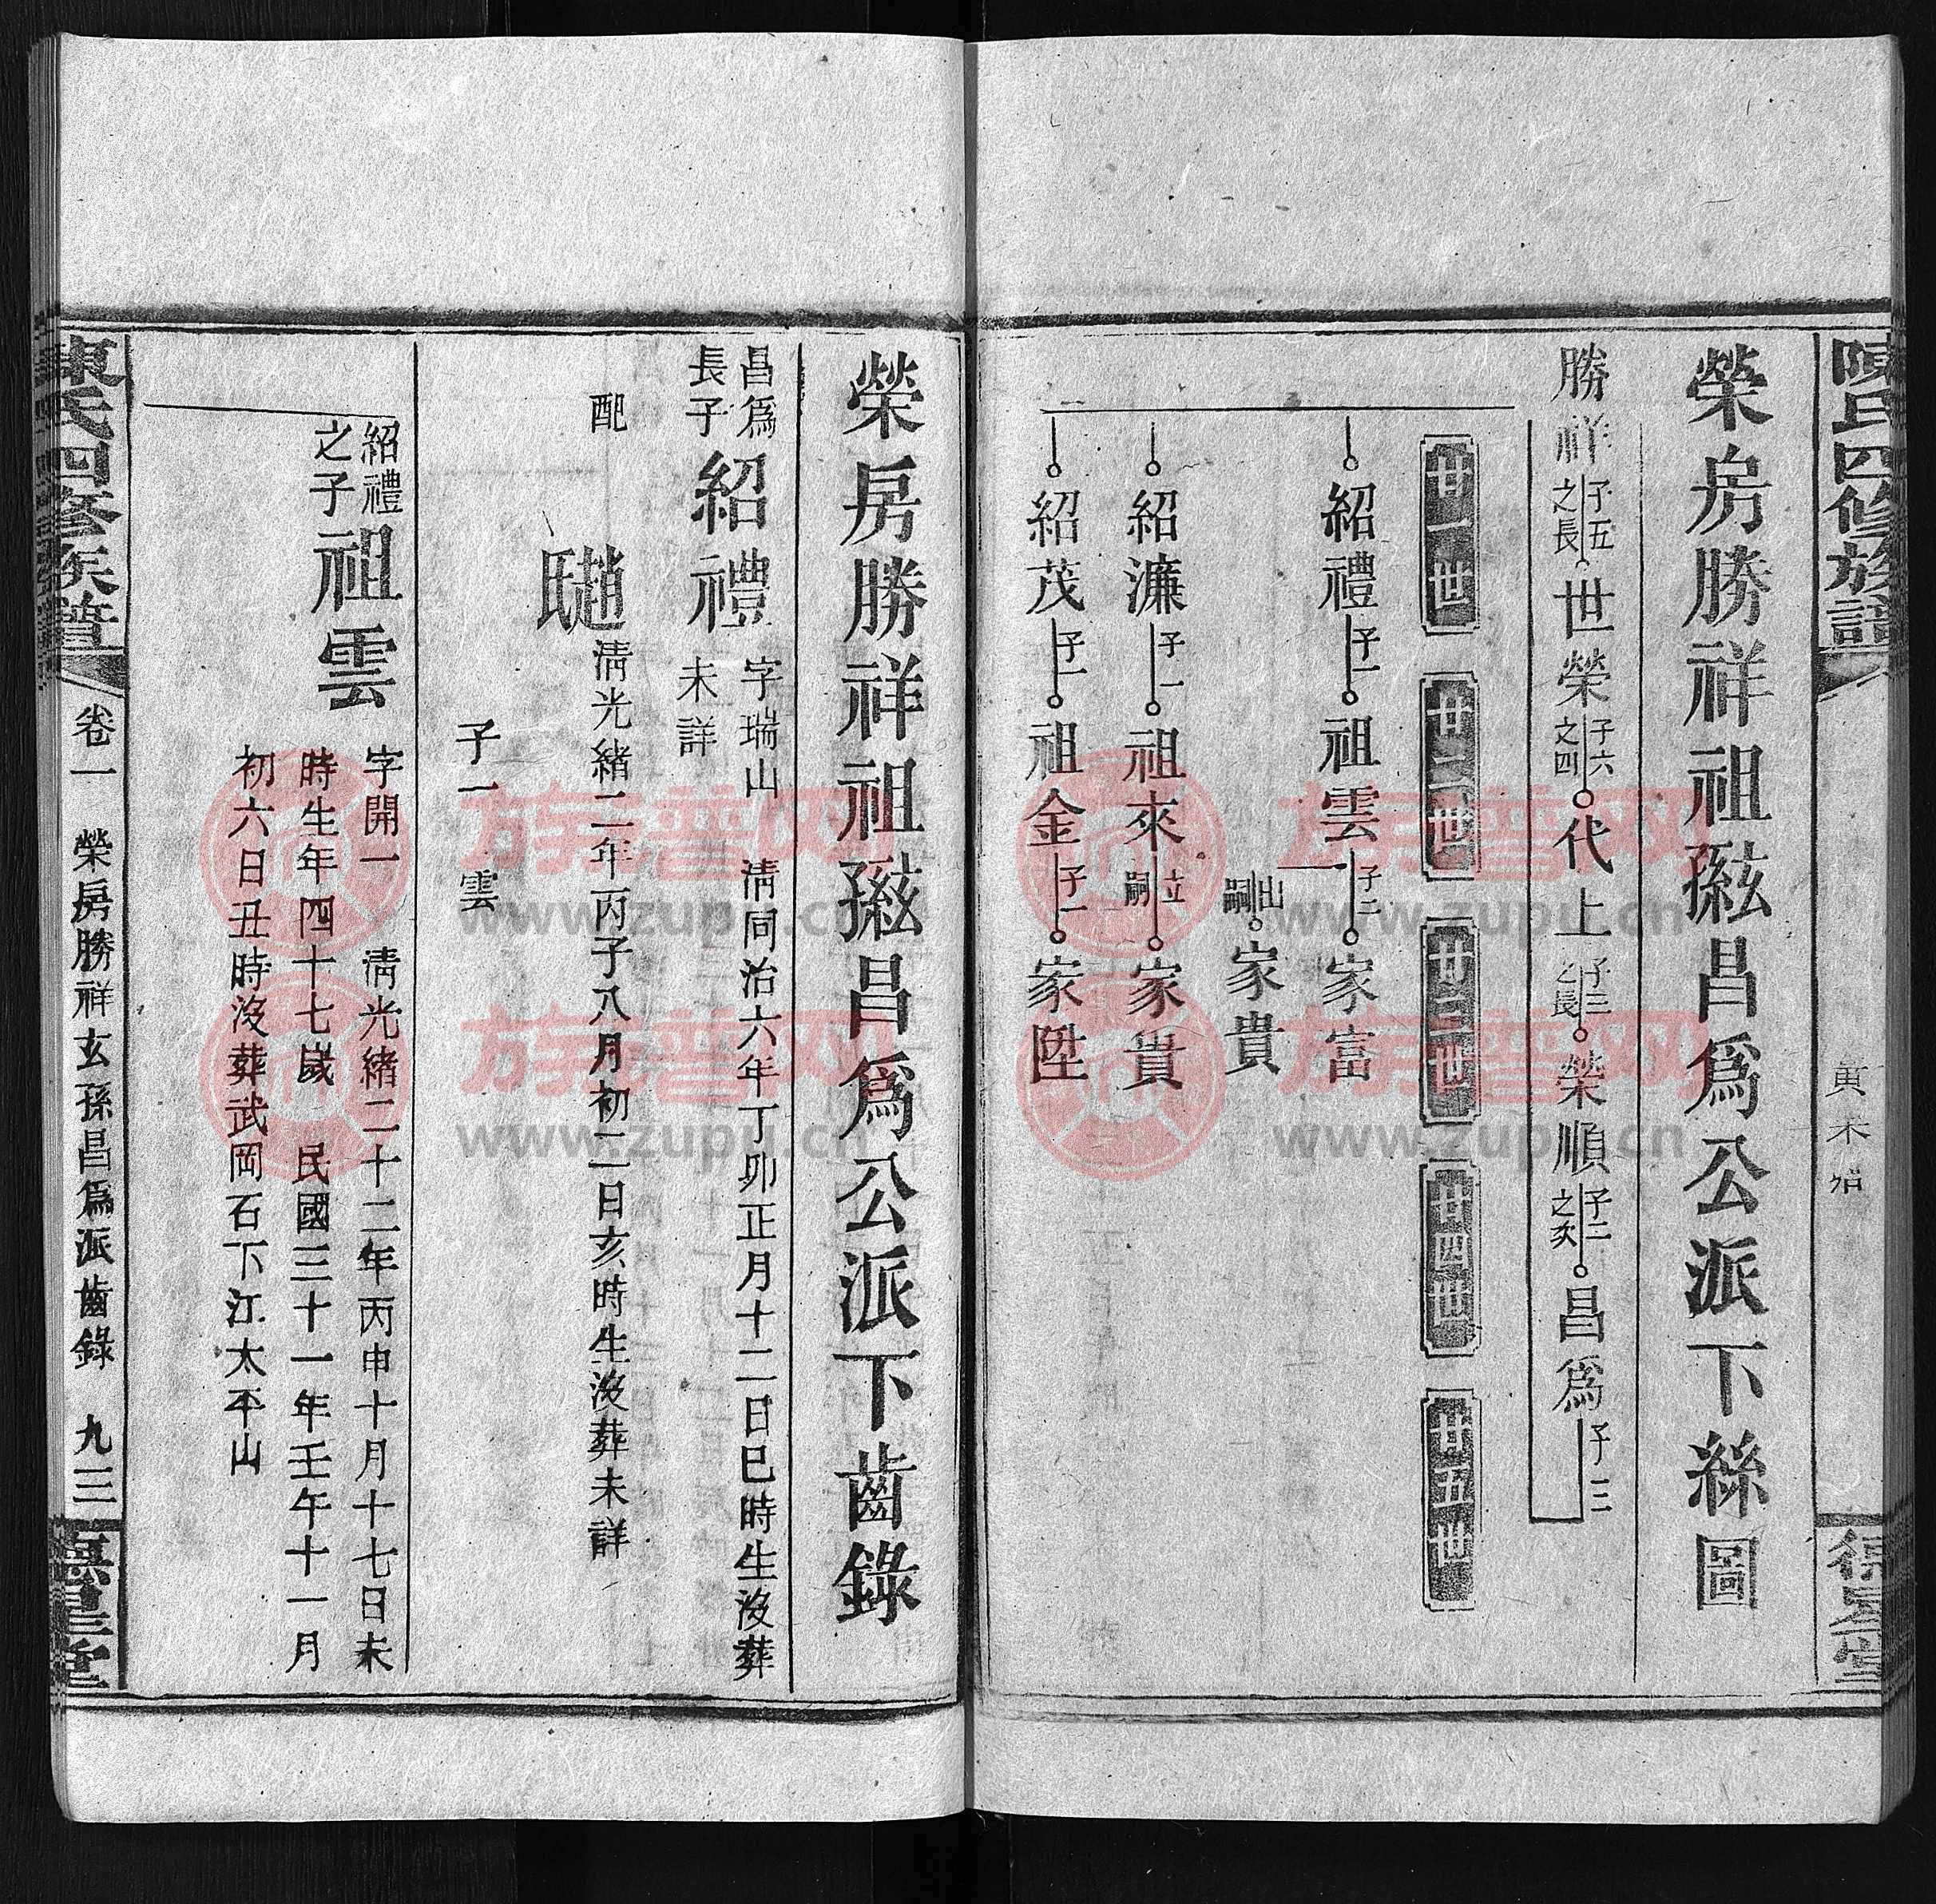 陳氏四修族譜
德星堂
榮房勝祥祖玄孫昌爲公派下絲圖
勝祥 子五之長 世榮 子六之四 代上 子三之長 榮順 子二之次 昌爲 子三
廿一世 廿二世 廿三世 廿四世 廿五世
紹禮 子一 祖雲 子二 家富
出嗣 家貴
紹濂 子一 祖來 立嗣 家貴
紹茂 子一 祖金 子一 家陞
榮房勝祥祖玄孫昌爲公派下齒錄
昌爲長子 紹禮 字瑞山 清同治六年丁卯正月十二日巳時生沒葬未詳
配 趙氏 清光緒二年丙子八月初二日亥時生沒葬未詳
子一 雲
紹禮之子 祖雲 字開一 清光緒二十二年丙申十月十七日未
時生年四十七歲 民國三十一年壬午十一月
初六日丑時沒葬武岡石下江太平山
陳氏四修族譜 卷一 榮房勝祥玄孫昌爲派齒錄 九三 德星堂
族谱网
www.zupu.cn
族谱网
www.zupu.cn
族谱网
www.zupu.cn
族谱网
www.zupu.cn